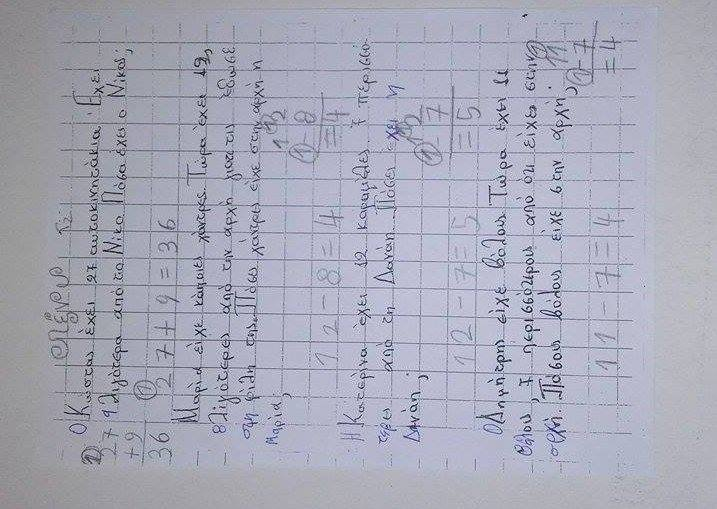 Ο Κώστας έχει 27 αυτοκινητάκια. Έχει
9 λιγότερα από το Νίκο. Πόσα έχει ο Νίκος;
27
+9
36
27+9=36
Μαρία είχε κάποιες χάντρες. Τώρα έχει 12,
8 λιγότερες από την αρχή γιατί τις έδωσε
στη φίλη της. Πόσες χάντρες είχε στην αρχή η
Μαρία;
12-8=4
12
-8
=4
Η Κατερίνα έχει 12 καραμέλες 7 περισσό-
τερες από τη Δανάη. Πόσες έχει η
Δανάη;
12-7=5
12
-7
=5
Ο Δημήτρης είχε βόλους. Τώρα έχει 11
βόλου, 7 περισσότερους από ότι είχε στην
αρχή. Πόσους βόλους είχε στην αρχή;
11-7=4
11
-7
=4